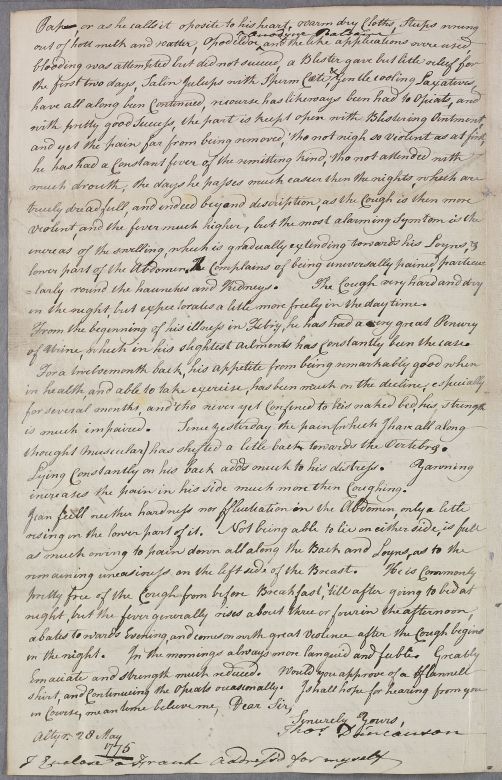 Pap- or as he calls it oposite to his heart, warm dry Cloths, Stups wrung
out of hott milk and watter, Opodeldoc, anodyne Balsam, and the like applications were used,
blooding was attempted but did not succeed, a Blister gave but little relief for
the first two days, Salin Juleps with Sperm Cæte & gentle cooling Laxatives
have all along been Continued, recourse has likeways been had to Opiats, and
with pretty good Success, the part is kept open with Blistering Ointment,
and yet the pain far from being removed, tho not nigh so violent as at first,
he has had a Constant fever of the remitting kind, tho not attended with
much drouth, the days he passes much easier then the nights, which are
truely dreadfull and indeed beyond description, as the Cough is then more
violent and the fever much higher, but the most alarming Symtom is the
increas of the swelling, which is gradually extending towards his Loyns, &
lower part of the Abdomen, Complains of being universally pained, particu
=larly round the haunches and Kidneys. The Cough very hard and dry
in the night but expectorates a little more freely in the day time.
From the beginning of his illness in Febry, he has had a very great Penury
of Urine, which in his slightest ailments has Constantly been the case.
For a twelvemonth back, his appetite from being remarkably good when
in health and able to take exercise, has been much on the decline, especially
for several months, and tho never yet Confined to his naked bed, his strength
is much impaired. Since yesterday the pain (which I have all along
thought muscular) has shifted a little back towards the Vertebræ.
Lying Constantly on his back adds much to his distress. Yawning
increases the pain in his side much more then Coughing.
I can feell neither hardness nor fluctuation in the Abdomen, only a little
rising on the lower part of it. Not being able to lie on either side, is full
as much owing to pains down all along the Back and Loyns, as to the
remaining uneasiness on the left side of the Breast. He is Commonly
pretty free of the Cough from before Breakfast, till after going to bed at
night, but the fever generally rises about three or four in the afternoon,
abates towards evening, and comes on with great Violence after the Cough begins
in the night. In the mornings always more languid and feeble. Greatly
Emaciate and strength much reduced. Would you approve of a flannell
shirt, and Continuing the Opiats occasionally. I shall hope for hearing from you
in Course, mean time believe me, Dear Sir,
Sincerely Yours,
Thos Duncanson
28 May
1776
I Enclose a Franke Address'd for myself